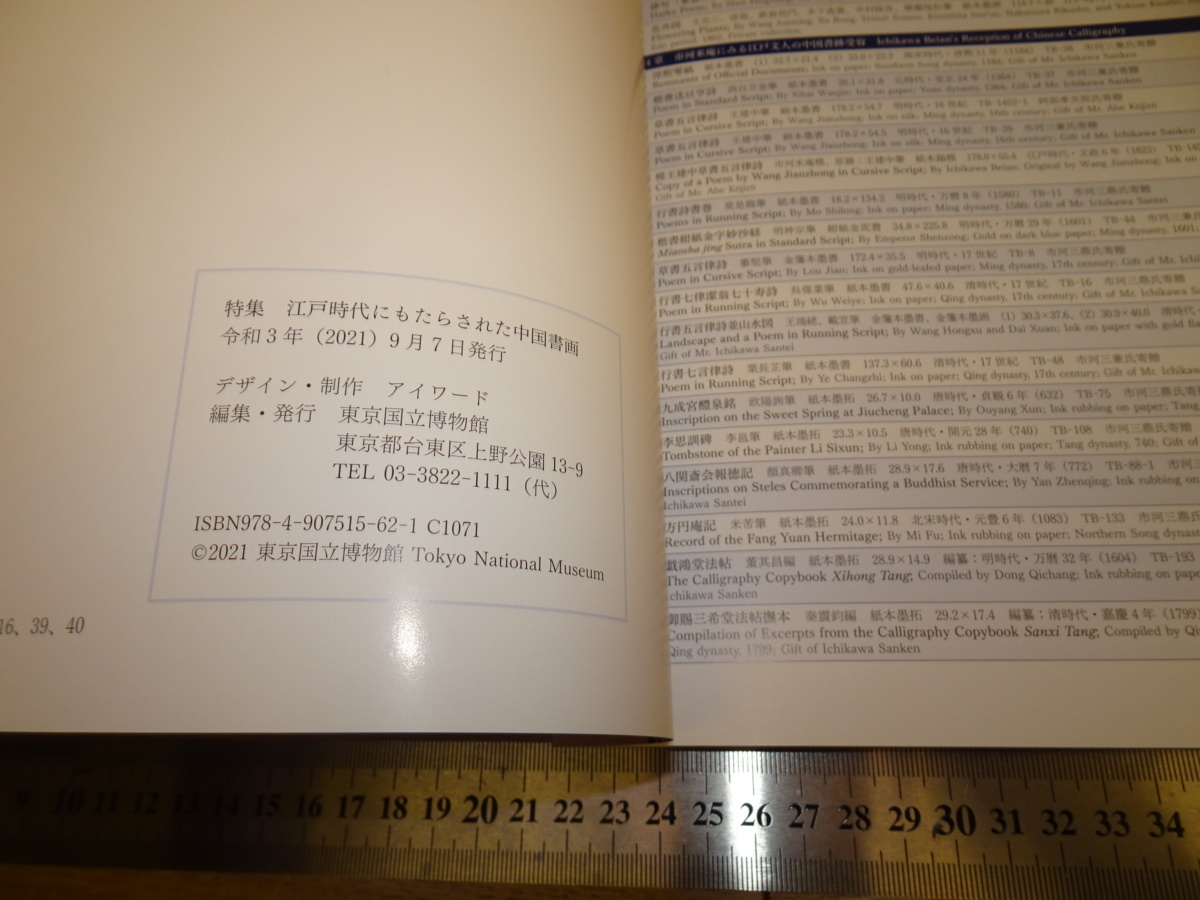 特集　江戸時代にもたらされた中国書画
令和3年（2021）9月7日発行
デザイン・制作　アイワード
編集・発行　東京国立博物館
東京都台東区上野公園13-9
TEL 03-3822-1111（代）
ISBN978-4-907515-62-1 C1071
©2021 東京国立博物館 Tokyo National Museum
16、39、40
市河米庵にみる江戸文人の中国書跡受容　Ichikawa Beian's Reception of Chinese Calligraphy
Remnants of Official Documents; Ink on paper; Southern Song dynasty, 1184; Gift of Mr. Ichikawa Sanken
Poem in Standard Script; By Xibai Wanjin; Ink on paper; Yuan dynasty, 1364; Gift of Mr. Ichikawa Sanken
草書五言律詩　王建中筆　紙本墨書　178.2×54.7　明時代・16世紀　TB-1452-1
Poem in Cursive Script; By Wang Jianzhong; Ink on silk; Ming dynasty, 16th century; Gift of Mr. Abe Kojien
草書五言律詩　王建中筆　紙本墨書　178.2×54.5　明時代・16世紀　TB-39　市河三兼氏寄贈
Poem in Cursive Script; By Wang Jianzhong; Ink on silk; Ming dynasty, 16th century; Gift of Mr. Ichikawa San
模王建中草書五言律詩　市河米庵模、原跡：王建中筆　紙本墨模　178.0×55.4　江戸時代・文政6年（1823）　TB-145
Copy of a Poem by Wang Jianzhong in Cursive Script; By Ichikawa Beian; Original by Wang Jianzhong; Ink on
Gift of Mr. Abe Kojien
行書詩書巻　莫是龍筆　紙本墨書　18.2×134.2　明時代・万暦8年（1580）　TB-11　市河三鼎氏寄贈
Poems in Running Script; By Mo Shilong; Ink on paper; Ming dynasty, 1580; Gift of Mr. Ichikawa Santei
楷書紺紙金字妙沙経　明神宗筆　紺紙金泥書　34.8×225.8　明時代・万暦29年（1601）　TB-44　市河三兼
Miaosha jing Sutra in Standard Script; By Emperor Shenzong; Gold on dark blue paper; Ming dynasty, 1601;
草書五言律詩　婁堅筆　金箋本墨書　172.4×35.5　明時代・17世紀　TB-8　市河三鼎氏寄贈
Poem in Cursive Script; By Lou Jian; Ink on gold-leafed paper; Ming dynasty, 17th century; Gift of Mr. Ichi
行書七律潔翁七十寿詩　呉偉業筆　紙本墨書　47.6×40.6　清時代・17世紀　TB-16　市河三鼎氏寄贈
Poem in Running Script; By Wu Weiye; Ink on paper; Qing dynasty, 17th century; Gift of Mr. Ichikawa S
行書五言律詩並山水図　王鴻緒、戴宜筆　金箋本墨書、金箋本墨画　(1) 30.3×37.6、(2) 30.9×40.0　清時代・
Landscape and a Poem in Running Script; By Wang Hongxu and Dai Xuan; Ink on paper with gold fl
Gift of Mr. Ichikawa Santei
行書七言律詩　葉長芷筆　紙本墨書　137.3×60.6　清時代・17世紀　TB-48　市河三兼氏寄贈
Poem in Running Script; By Ye Changzhi; Ink on paper; Qing dynasty, 17th century; Gift of Mr. Ichikaw
九成宮醴泉銘　欧陽詢筆　紙本墨拓　26.7×10.0　唐時代・貞観6年（632）　TB-75　市河三兼氏寄
Inscription on the Sweet Spring at Jiucheng Palace; By Ouyang Xun; Ink rubbing on paper; Tang
李思訓碑　李邕筆　紙本墨拓　23.3×10.5　唐時代・開元28年（740）　TB-108　市河三鼎氏寄贈
Tombstone of the Painter Li Sixun; By Li Yong; Ink rubbing on paper; Tang dynasty, 740; Gift of
八関斎会報徳記　顔真卿筆　紙本墨拓　28.9×17.6　唐時代・大暦7年（772）　TB-88-1　市河三
Inscriptions on Steles Commemorating a Buddhist Service; By Yan Zhenqing; Ink rubbing on
Ichikawa Santei
方円庵記　米芾筆　紙本墨拓　24.0×11.8　北宋時代・元豊6年（1083）　TB-133　市河三兼氏
Record of the Fang Yuan Hermitage; By Mi Fu; Ink rubbing on paper; Northern Song dynast
戯鴻堂法帖　董其昌編　紙本墨拓　28.9×14.9　編纂：明時代・万暦32年（1604）　TB-193
The Calligraphy Copybook Xihong Tang; Compiled by Dong Qichang; Ink rubbing on pape
Ichikawa Sanken
御賜三希堂法帖撫本　秦震鈞編　紙本墨拓　29.2×17.4　編纂：清時代・嘉慶4年（1799）
Compilation of Excerpts from the Calligraphy Copybook Sanxi Tang; Compiled by Q
Qing dynasty, 1799; Gift of Ichikawa Sanken
9 10 11 12 13 14 15 16 17 18 19 20 21 22 23 24 25 26 27 28 29 30 31 32 33 34